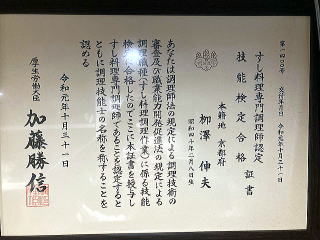 第一四〇〇号 交付年月日 令和元年十月三十一日
すし料理専門調理師認定
技能検定合格証書
本籍地 京都府
柳澤伸夫
昭和四十年二月八日生
あなたは調理師法の規定による調理技術の
審査及び職業能力開発促進法の規定による
調理職種(すし料理調理作業)に係る技能
検定に合格したのでここに本証書を授与し
すし料理専門調理師であることを認定すると
ともに調理技能士の名称を称することを
認める
令和元年十月三十一日
厚生労働大臣 加藤勝信